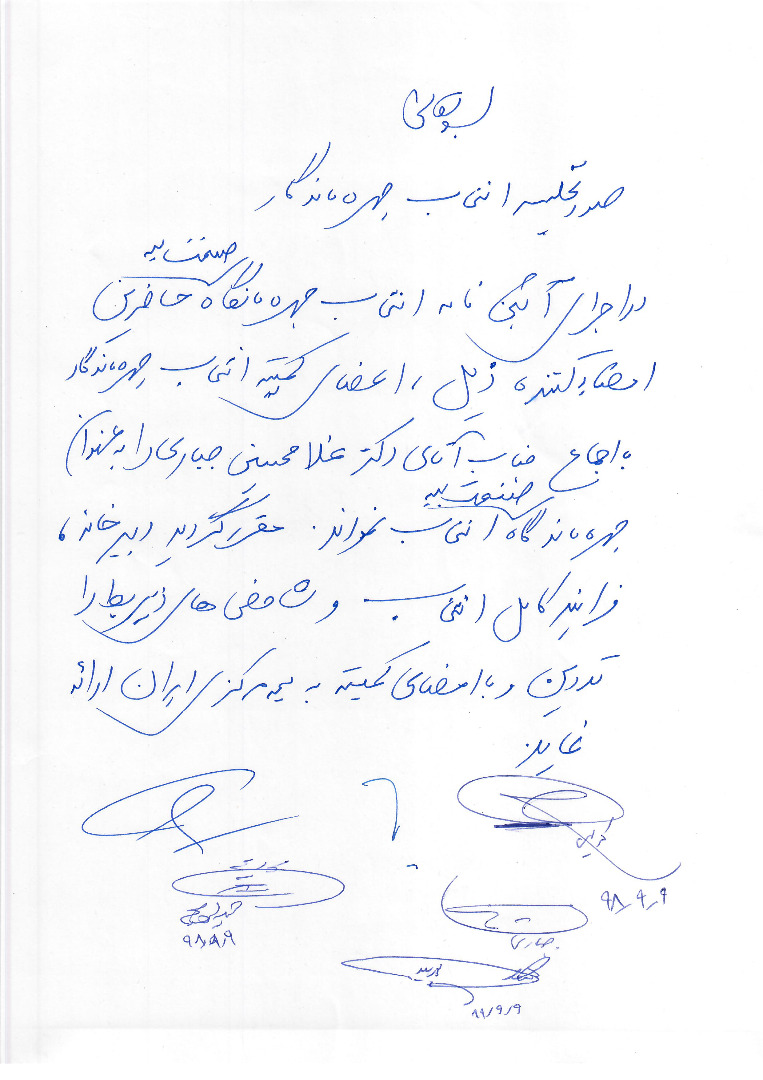 بسمه تعالی
صورتجلسه انتخاب چهره ماندگار
صنعت بیمه
در اجرای آئین نامه انتخاب چهره ماندگار حاضرین
امضاء کننده ذیل، اعضای کمیته انتخاب چهره ماندگار
با اجماع جناب آقای دکتر غلامحسین جباری را به عنوان
صنعت بیمه
چهره ماندگار انتخاب نمودند. مقرر گردید دبیرخانه،
فرایند کامل انتخاب و شاخص های ذیربط را
تدوین و با امضای کمیته به بیمه مرکزی ایران ارائه
نماید.
۹۸/۹/۹
جباری
۹۸/۹/۹
۹۸/۹/۹